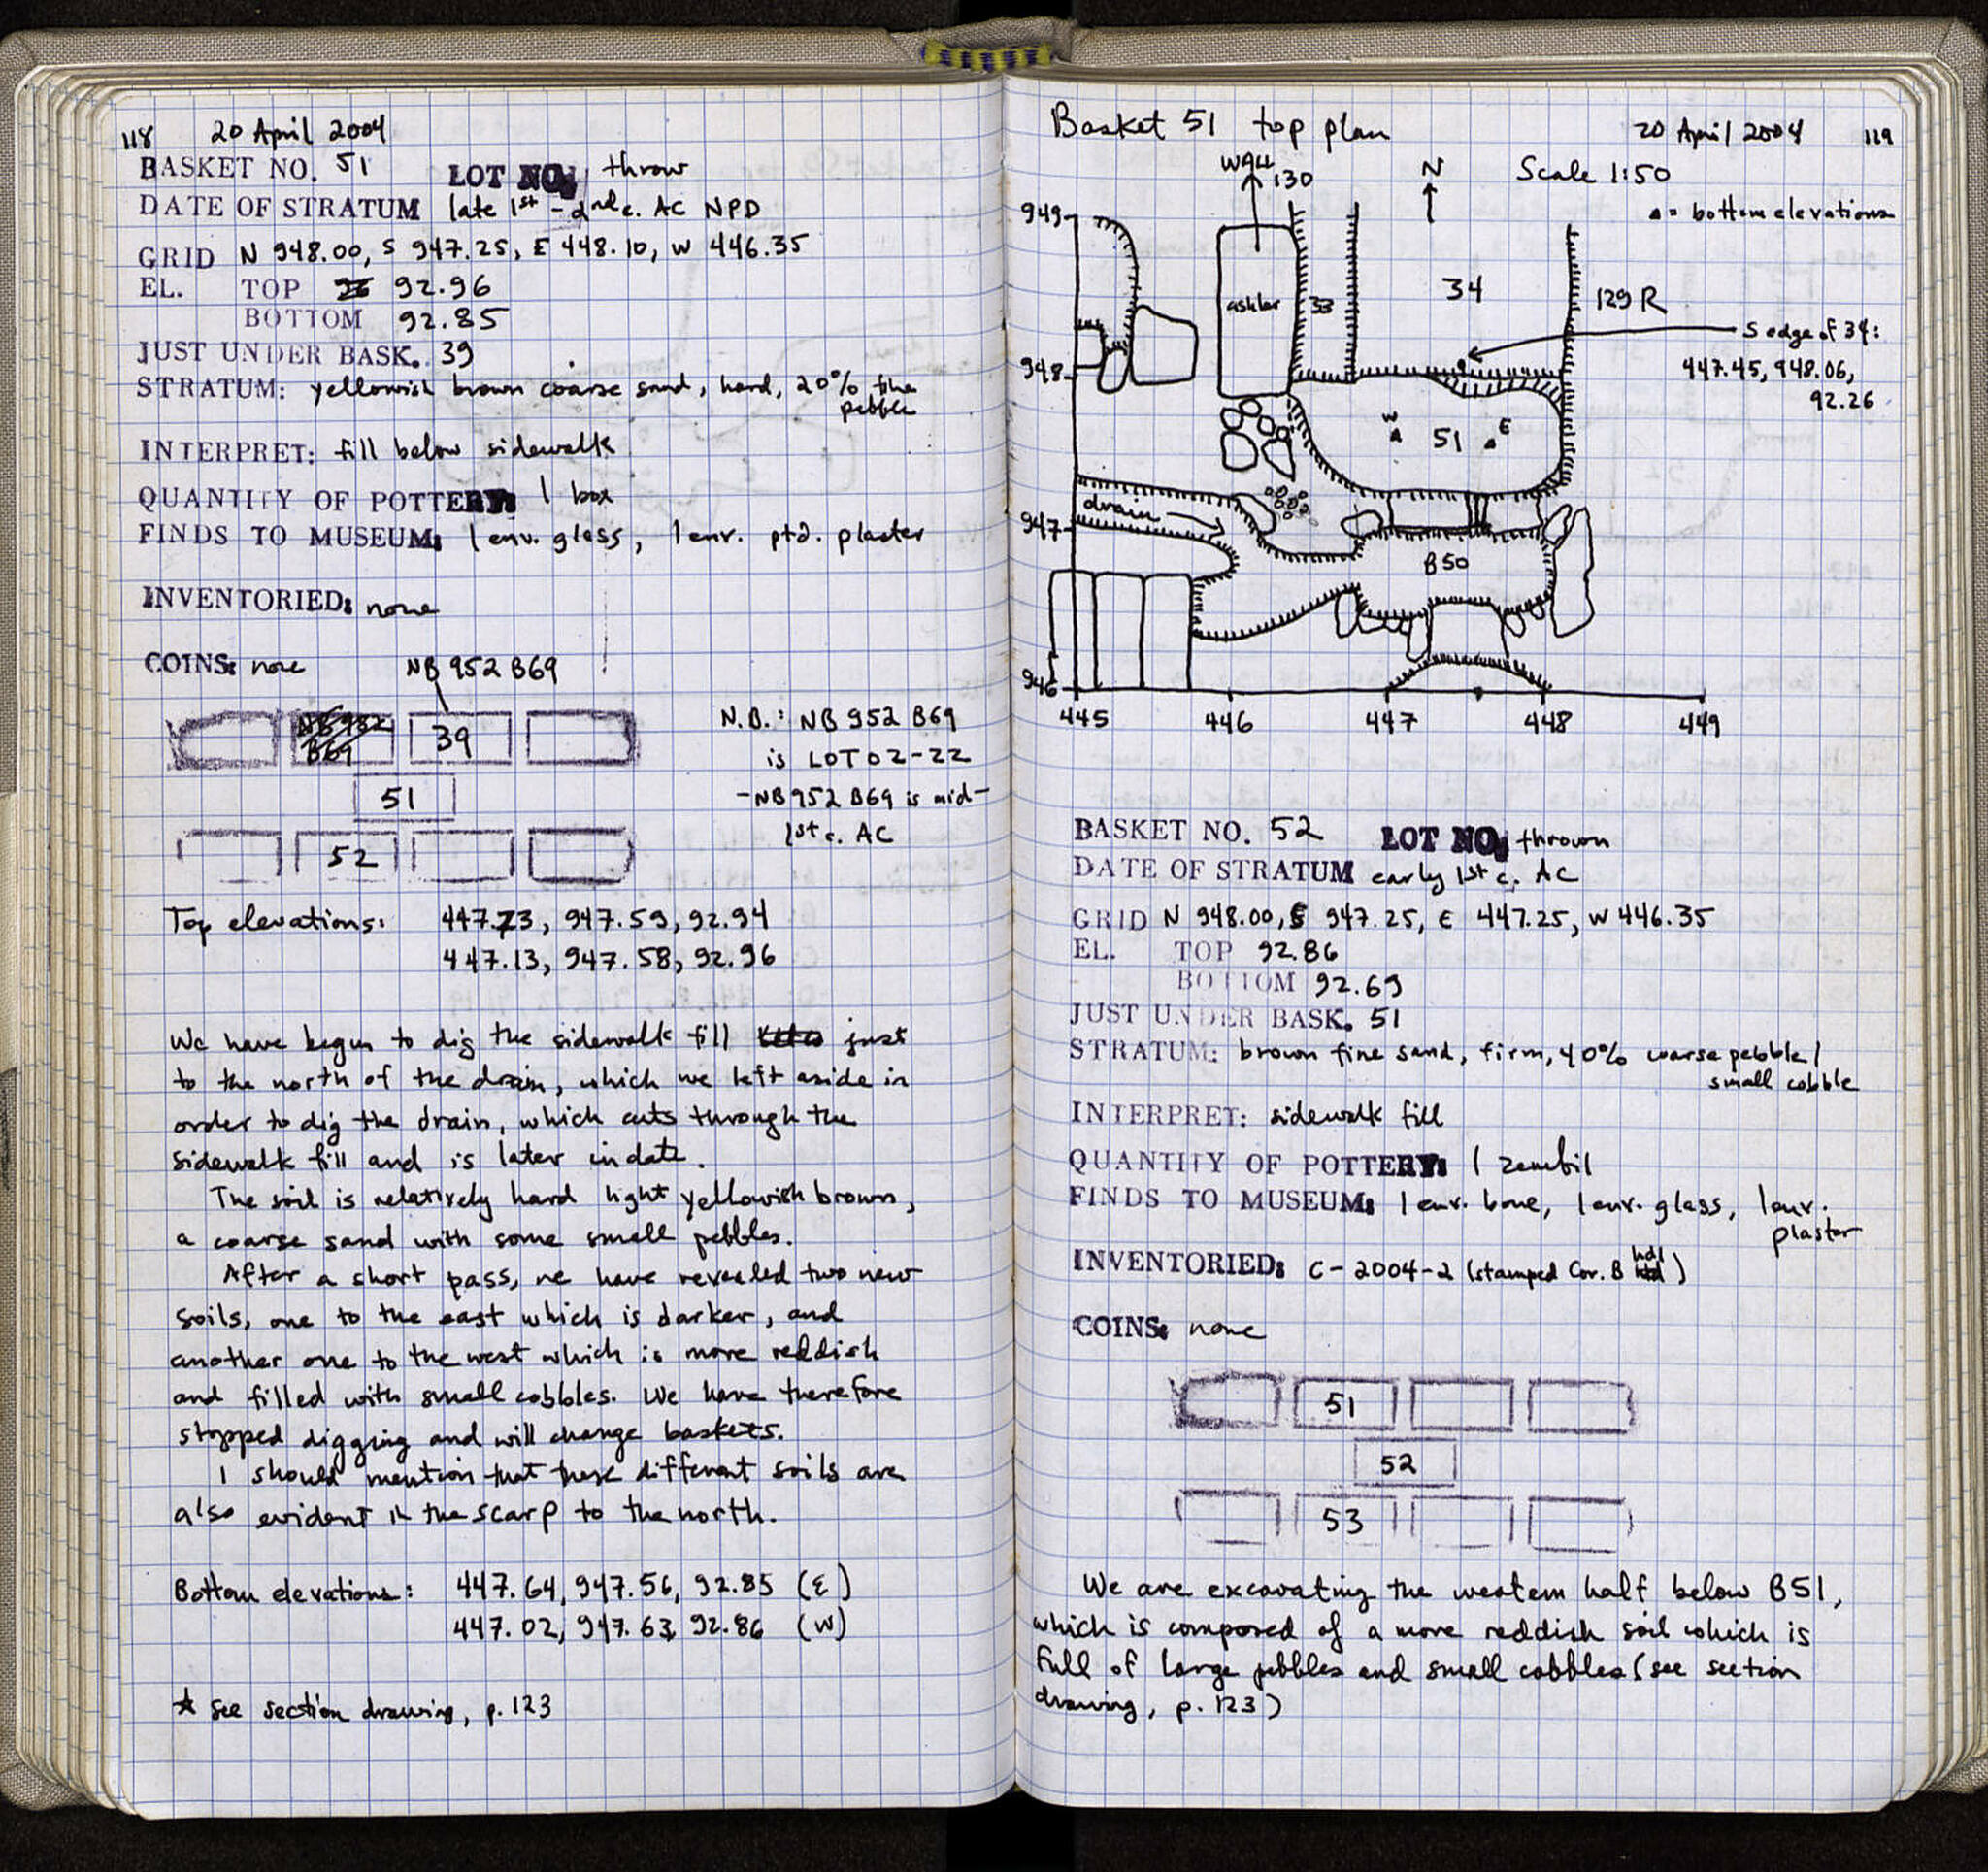 118 20 April 2004
BASKET NO. 51 LOT NO. throw
DATE OF STRATUM late 1st - 2nd c. AC NPD
GRID N 948.00, S 947.25, E 448.10, W 446.35
EL. TOP 92.96
BOTTOM 92.85
JUST UNDER BASK. 39
STRATUM: yellowish brown coarse sand, hard, 20% fine
pebble
INTERPRET: fill below sidewalk
QUANTITY OF POTTERY: 1 box
FINDS TO MUSEUM: 1 env. glass, 1 env. ptd. plaster
INVENTORIED: none
COINS: none NB 952 B69
NB 952 39
B69
51
52
N.B.: NB 952 B69
is LOT 02-22
-NB 952 B69 is mid-
1st c. AC
Top elevations: 447.73, 947.59, 92.94
447.13, 947.58, 92.96
We have begun to dig the sidewalk fill just
to the north of the drain, which we left aside in
order to dig the drain, which cuts through the
sidewalk fill and is later in date.
The soil is relatively hard light yellowish brown,
a coarse sand with some small pebbles.
After a short pass, we have revealed two new
soils, one to the east which is darker, and
another one to the west which is more reddish
and filled with small cobbles. We have therefore
stopped digging and will change baskets.
I should mention that these different soils are
also evident in the scarp to the north.
Bottom elevations: 447.64, 947.56, 92.85 (E)
447.02, 947.63, 92.86 (W)
★ see section drawing, p. 123
Basket 51 top plan 20 April 2004 119
WALL
130
N
Scale 1:50
▲ = bottom elevations
949
ashlar
33
34
129 R
S edge of 34:
447.45, 948.06,
92.26
948
W
51
E
drain
947
B50
946
445 446 447 448 449
BASKET NO. 52 LOT NO. thrown
DATE OF STRATUM early 1st c. AC
GRID N 948.00, S 947.25, E 447.25, W 446.35
EL. TOP 92.86
BOTTOM 92.69
JUST UNDER BASK. 51
STRATUM: brown fine sand, firm, 40% coarse pebble/
small cobble
INTERPRET: sidewalk fill
QUANTITY OF POTTERY: 1 zembil
FINDS TO MUSEUM: 1 env. bone, 1 env. glass, 1 env.
plaster
INVENTORIED: C-2004-2 (stamped Cor. B hdl)
COINS: none
51
52
53
We are excavating the western half below B51,
which is composed of a more reddish soil which is
full of large pebbles and small cobbles (see section
drawing, p. 123)